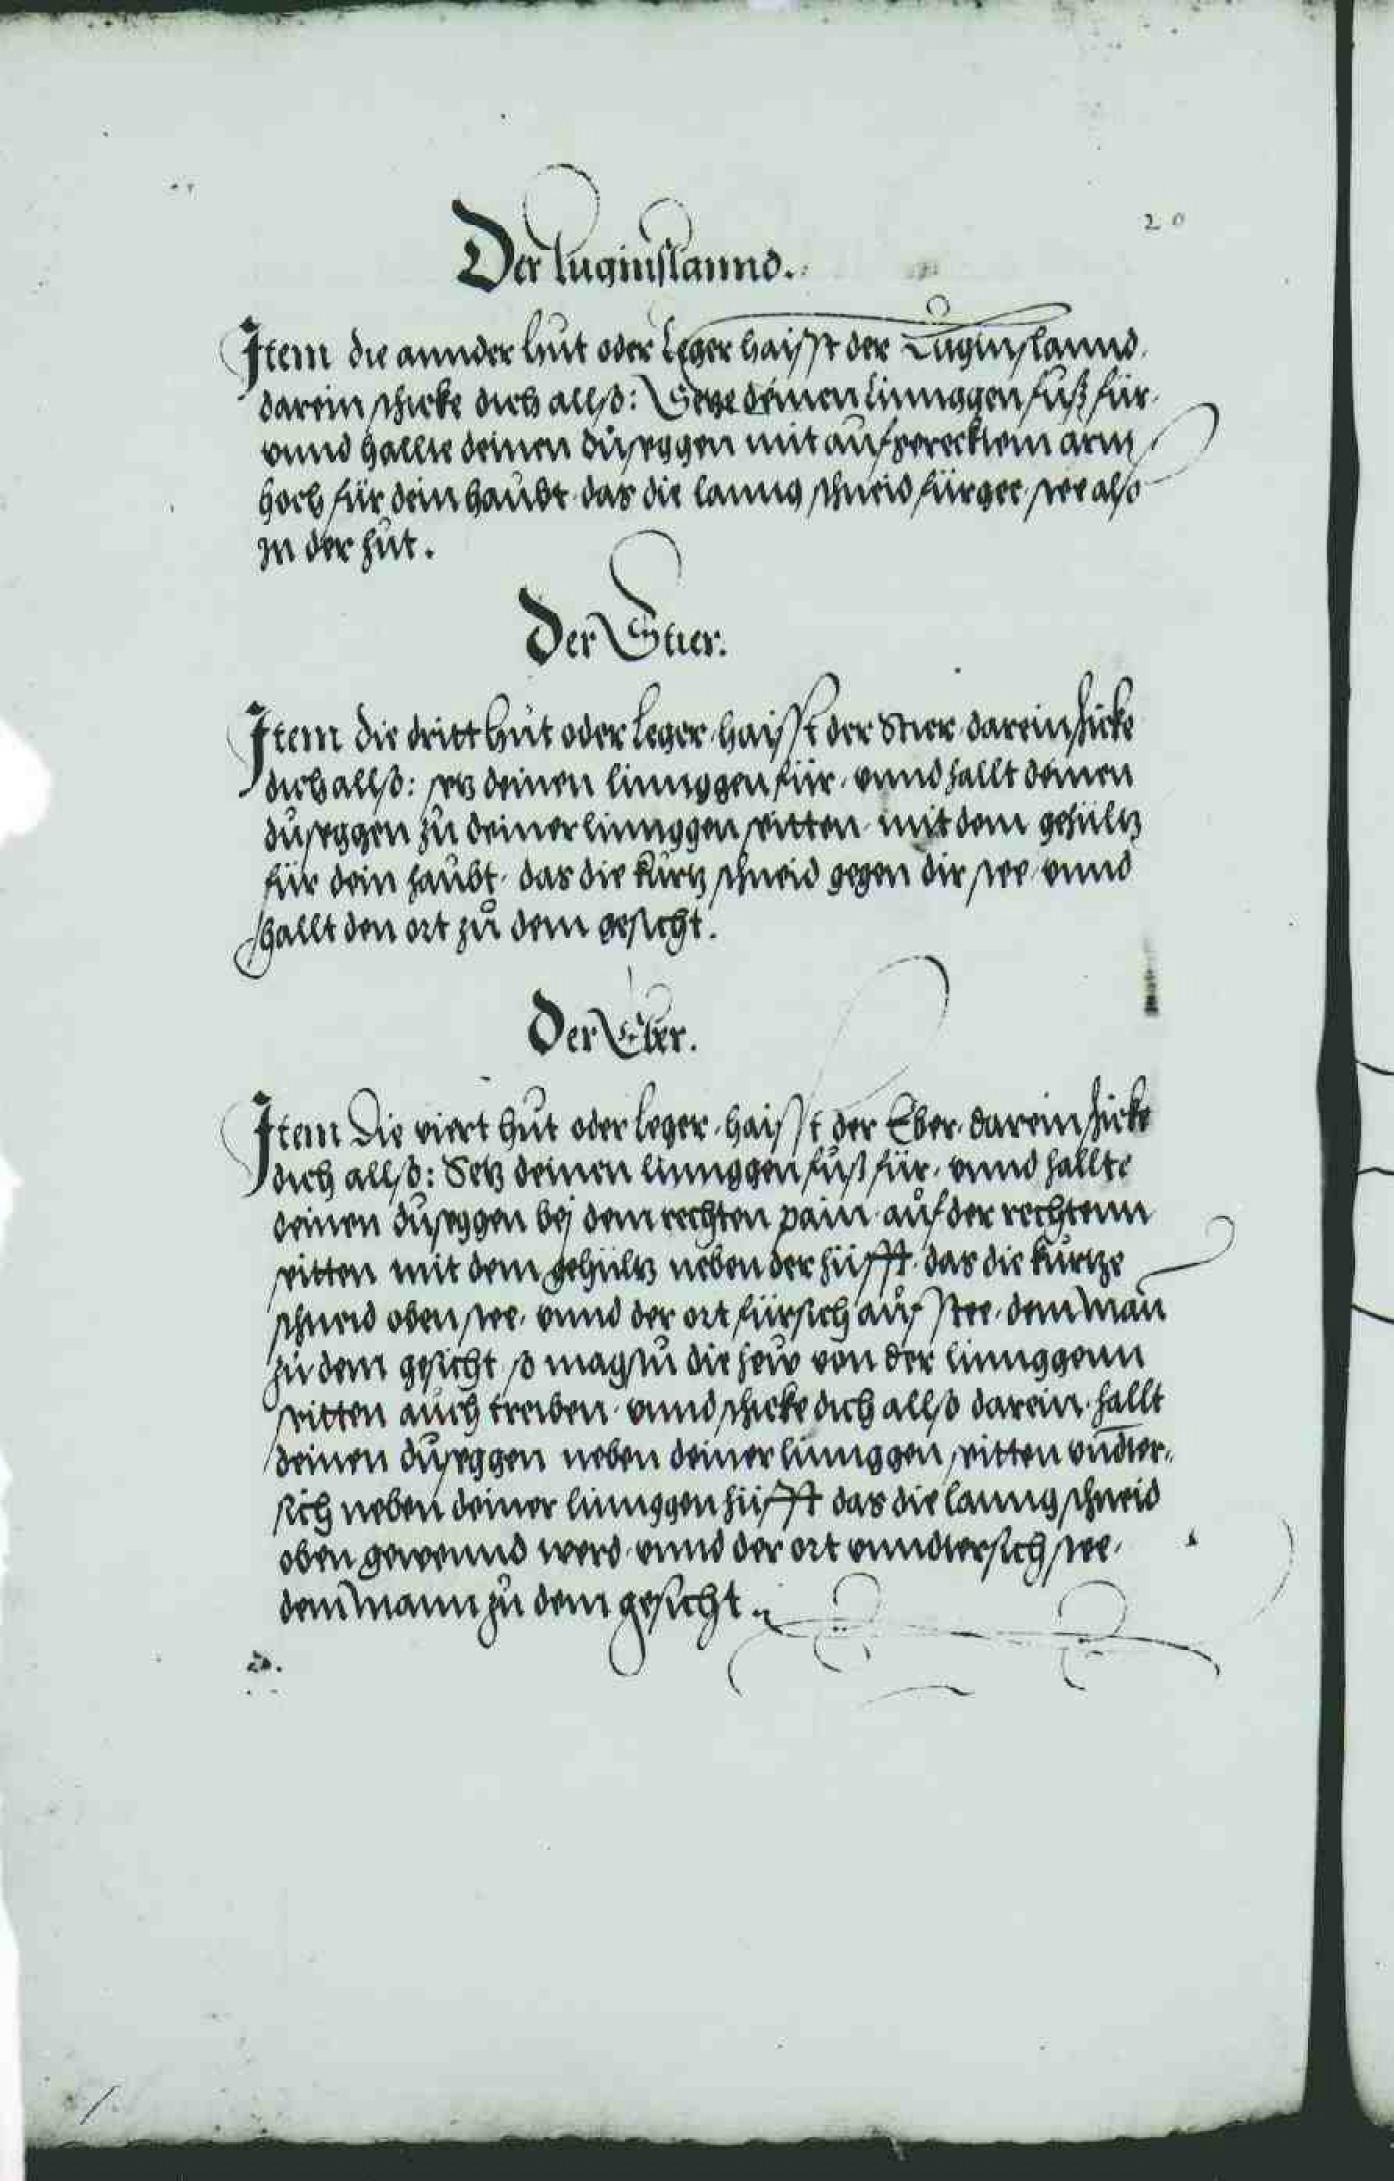 20
Der luginslannd.
Item die annder hut oder leger haisst der Luginslannd.
darein schicke dich allso: Setze deinen linnggen fuß für
vnnd hallte deinen duseggen mit aufgerecktem arm
hoch für dein haubt das die lanng schneid fürgee stee also
in der hut.
Der Stier.
Item die dritt hut oder leger haisst der Stier darein schicke
dich allso: setz deinen linnggen für vnnd hallt deinen
duseggen zu deiner linnggen seitten mit dem gehültz
für dein haubt das die kurtz schneid gegen dir stee vnnd
hallt den ort zů dem gesicht.
Der Eber.
Item Die viert hut oder leger haisst der Eber darein schicke
dich allso: Setz deinen linnggen fuß für vnnd hallte
deinen duseggen bej dem rechten pain auf der rechtenn
seitten mit dem gehültz neben der hüfft das die kurtze
schneid oben stee vnnd der ort fürsich auf stee dem Man
zu dem gesicht so magstu die hew von der linnggenn
seitten auch treiben vnnd schicke dich allso darein hallt
deinen duseggen neben deiner linnggen seitten vndter-
sich neben deiner linnggen hüfft das die lanng schneid
oben gewennd werd vnnd der ort vnndtersich stee
dem Mann zu dem gesicht.